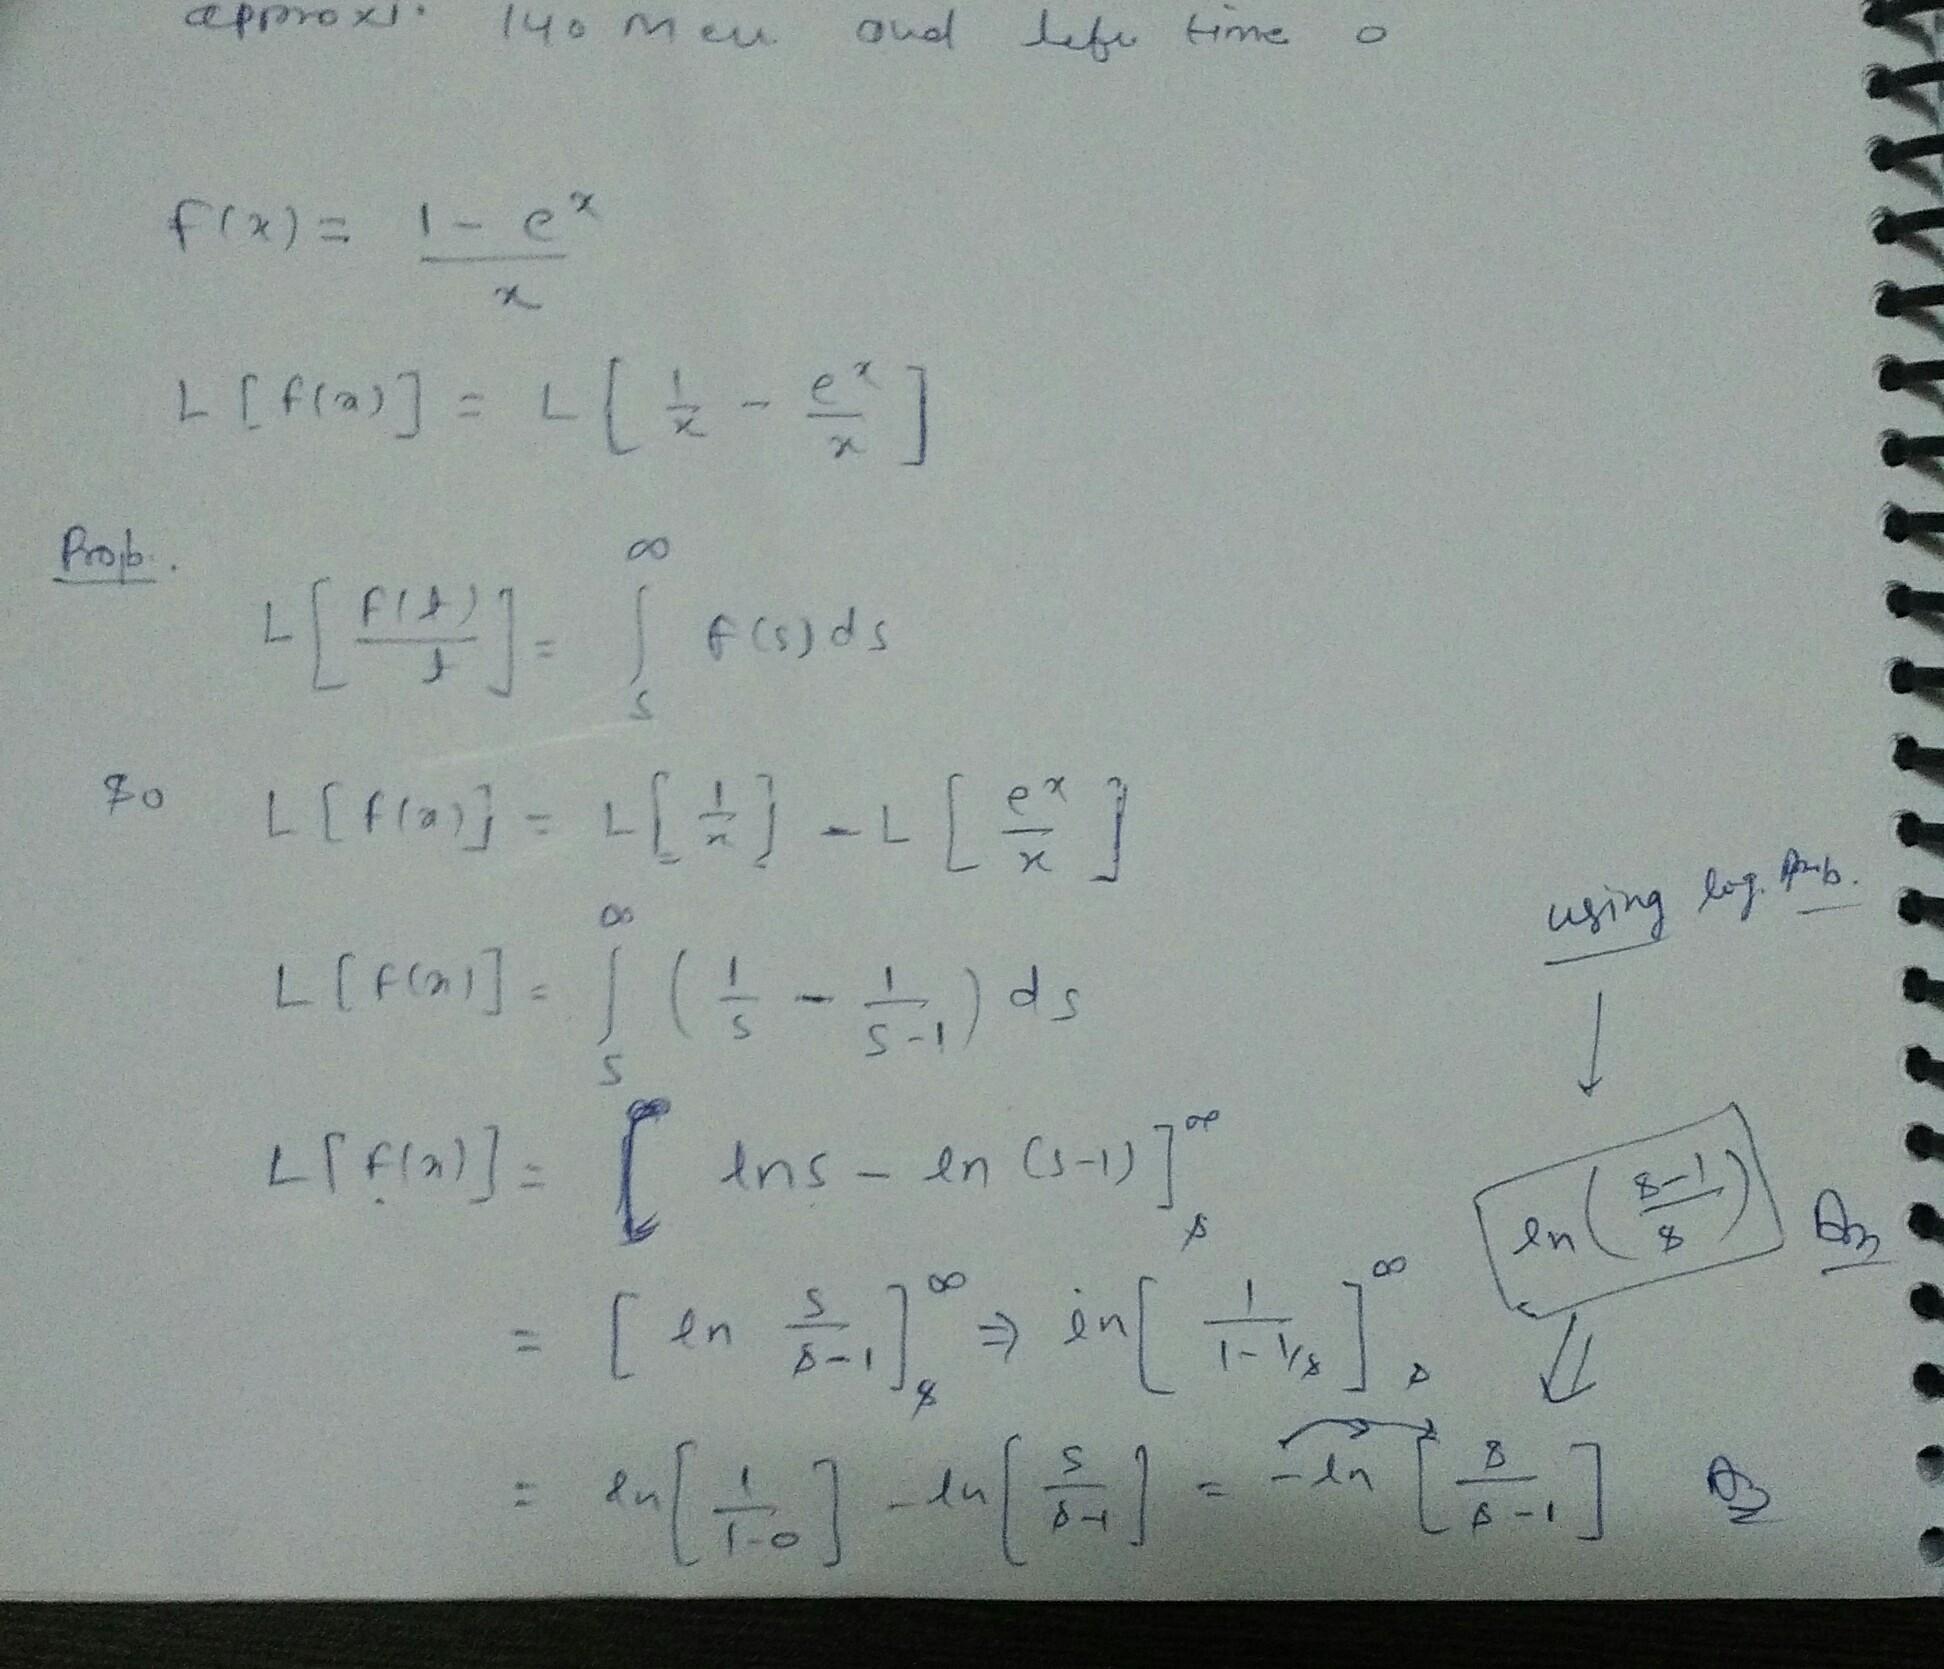 approxi. 140 Mev and life time 0
f(x) = \frac{1 - e^x}{x}
L[f(x)] = L[\frac{1}{x} - \frac{e^x}{x}]
Prop.
L[\frac{f(t)}{t}] = \int_s^∞ f(s) ds
So L[f(x)] = L[\frac{1}{x}] - L[\frac{e^x}{x}]
L[f(x)] = \int_s^∞ (\frac{1}{s} - \frac{1}{s-1}) ds
L[f(x)] = [ln s - ln (s-1)]_s^∞
= [ln \frac{s}{s-1}]_s^∞ ⇒ ln[\frac{1}{1 - 1/s}]_s^∞
= ln[\frac{1}{1-0}] - ln[\frac{s}{s-1}] = -ln[\frac{s}{s-1}] Ans
using log. Prop.
↓
ln(\frac{s-1}{s}) Ans
⇓